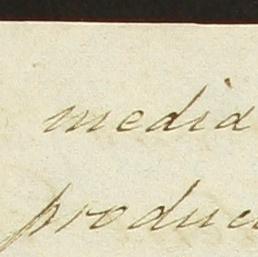 media
produc